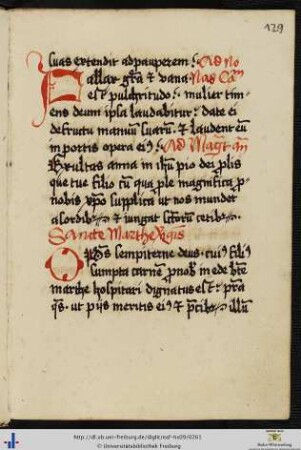 129
suas extendit ad pauperem : Ad No
Fallax gr̄a et vana Nas Can̄
est pulchritudo : mulier tim
ens deum ipsa laudabitur : date ei
de fructu manuū suarū et laudent eū
in portis opera eiꝰ : Ad Mag̃t an̄
Exultas anna in ihū pio dei prolis
que tue filio cū qua ple magnifica p
nobis xp̄o supplica ut nos mundet
a sordibꝫ et iungat sctorū cetibꝫ
Sancte Marthe Vgīs
Op̄s sempiterne deus cuiꝰ filiꝰ
sumpta carne p nobꝫ in ede bte
marthe hospitari dignatus est : pra
qs ut pijs meritis eiꝰ et p̄cibꝫ illū
http://dl.ub.uni-freiburg.de/diglit/
© Universitätsbibliothek Freiburg